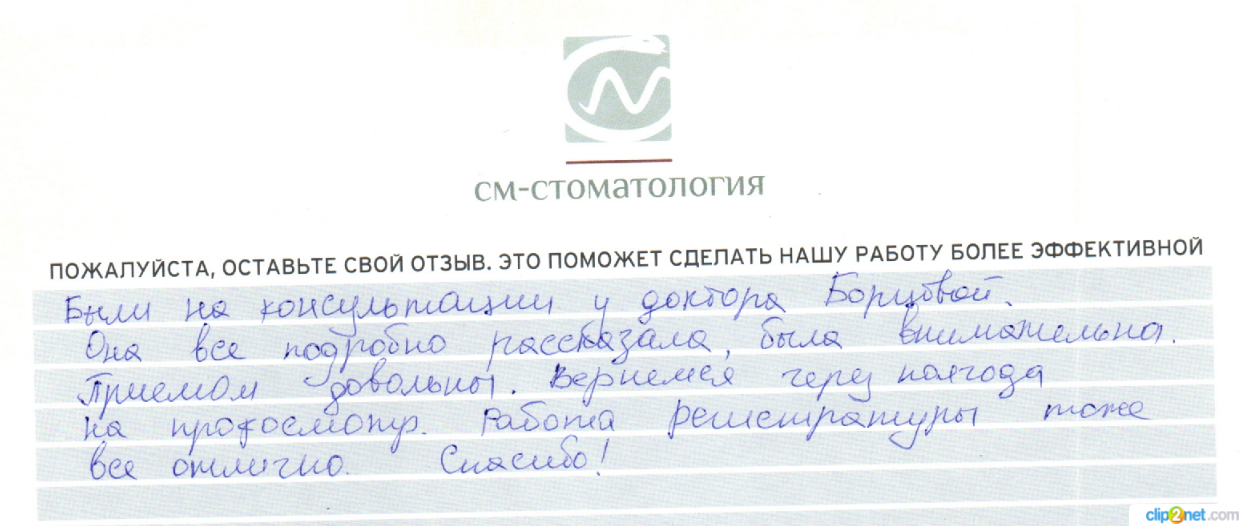 СМ-СТОМАТОЛОГИЯ
ПОЖАЛУЙСТА, ОСТАВЬТЕ СВОЙ ОТЗЫВ. ЭТО ПОМОЖЕТ СДЕЛАТЬ НАШУ РАБОТУ БОЛЕЕ ЭФФЕКТИВНОЙ
Были на консультации у доктора Борцовой.
Она все подробно рассказала, была внимательна.
Приемом довольны. Вернемся через полгода
на профосмотр. Работа регистратуры тоже
все отлично. Спасибо!
clip2net.com